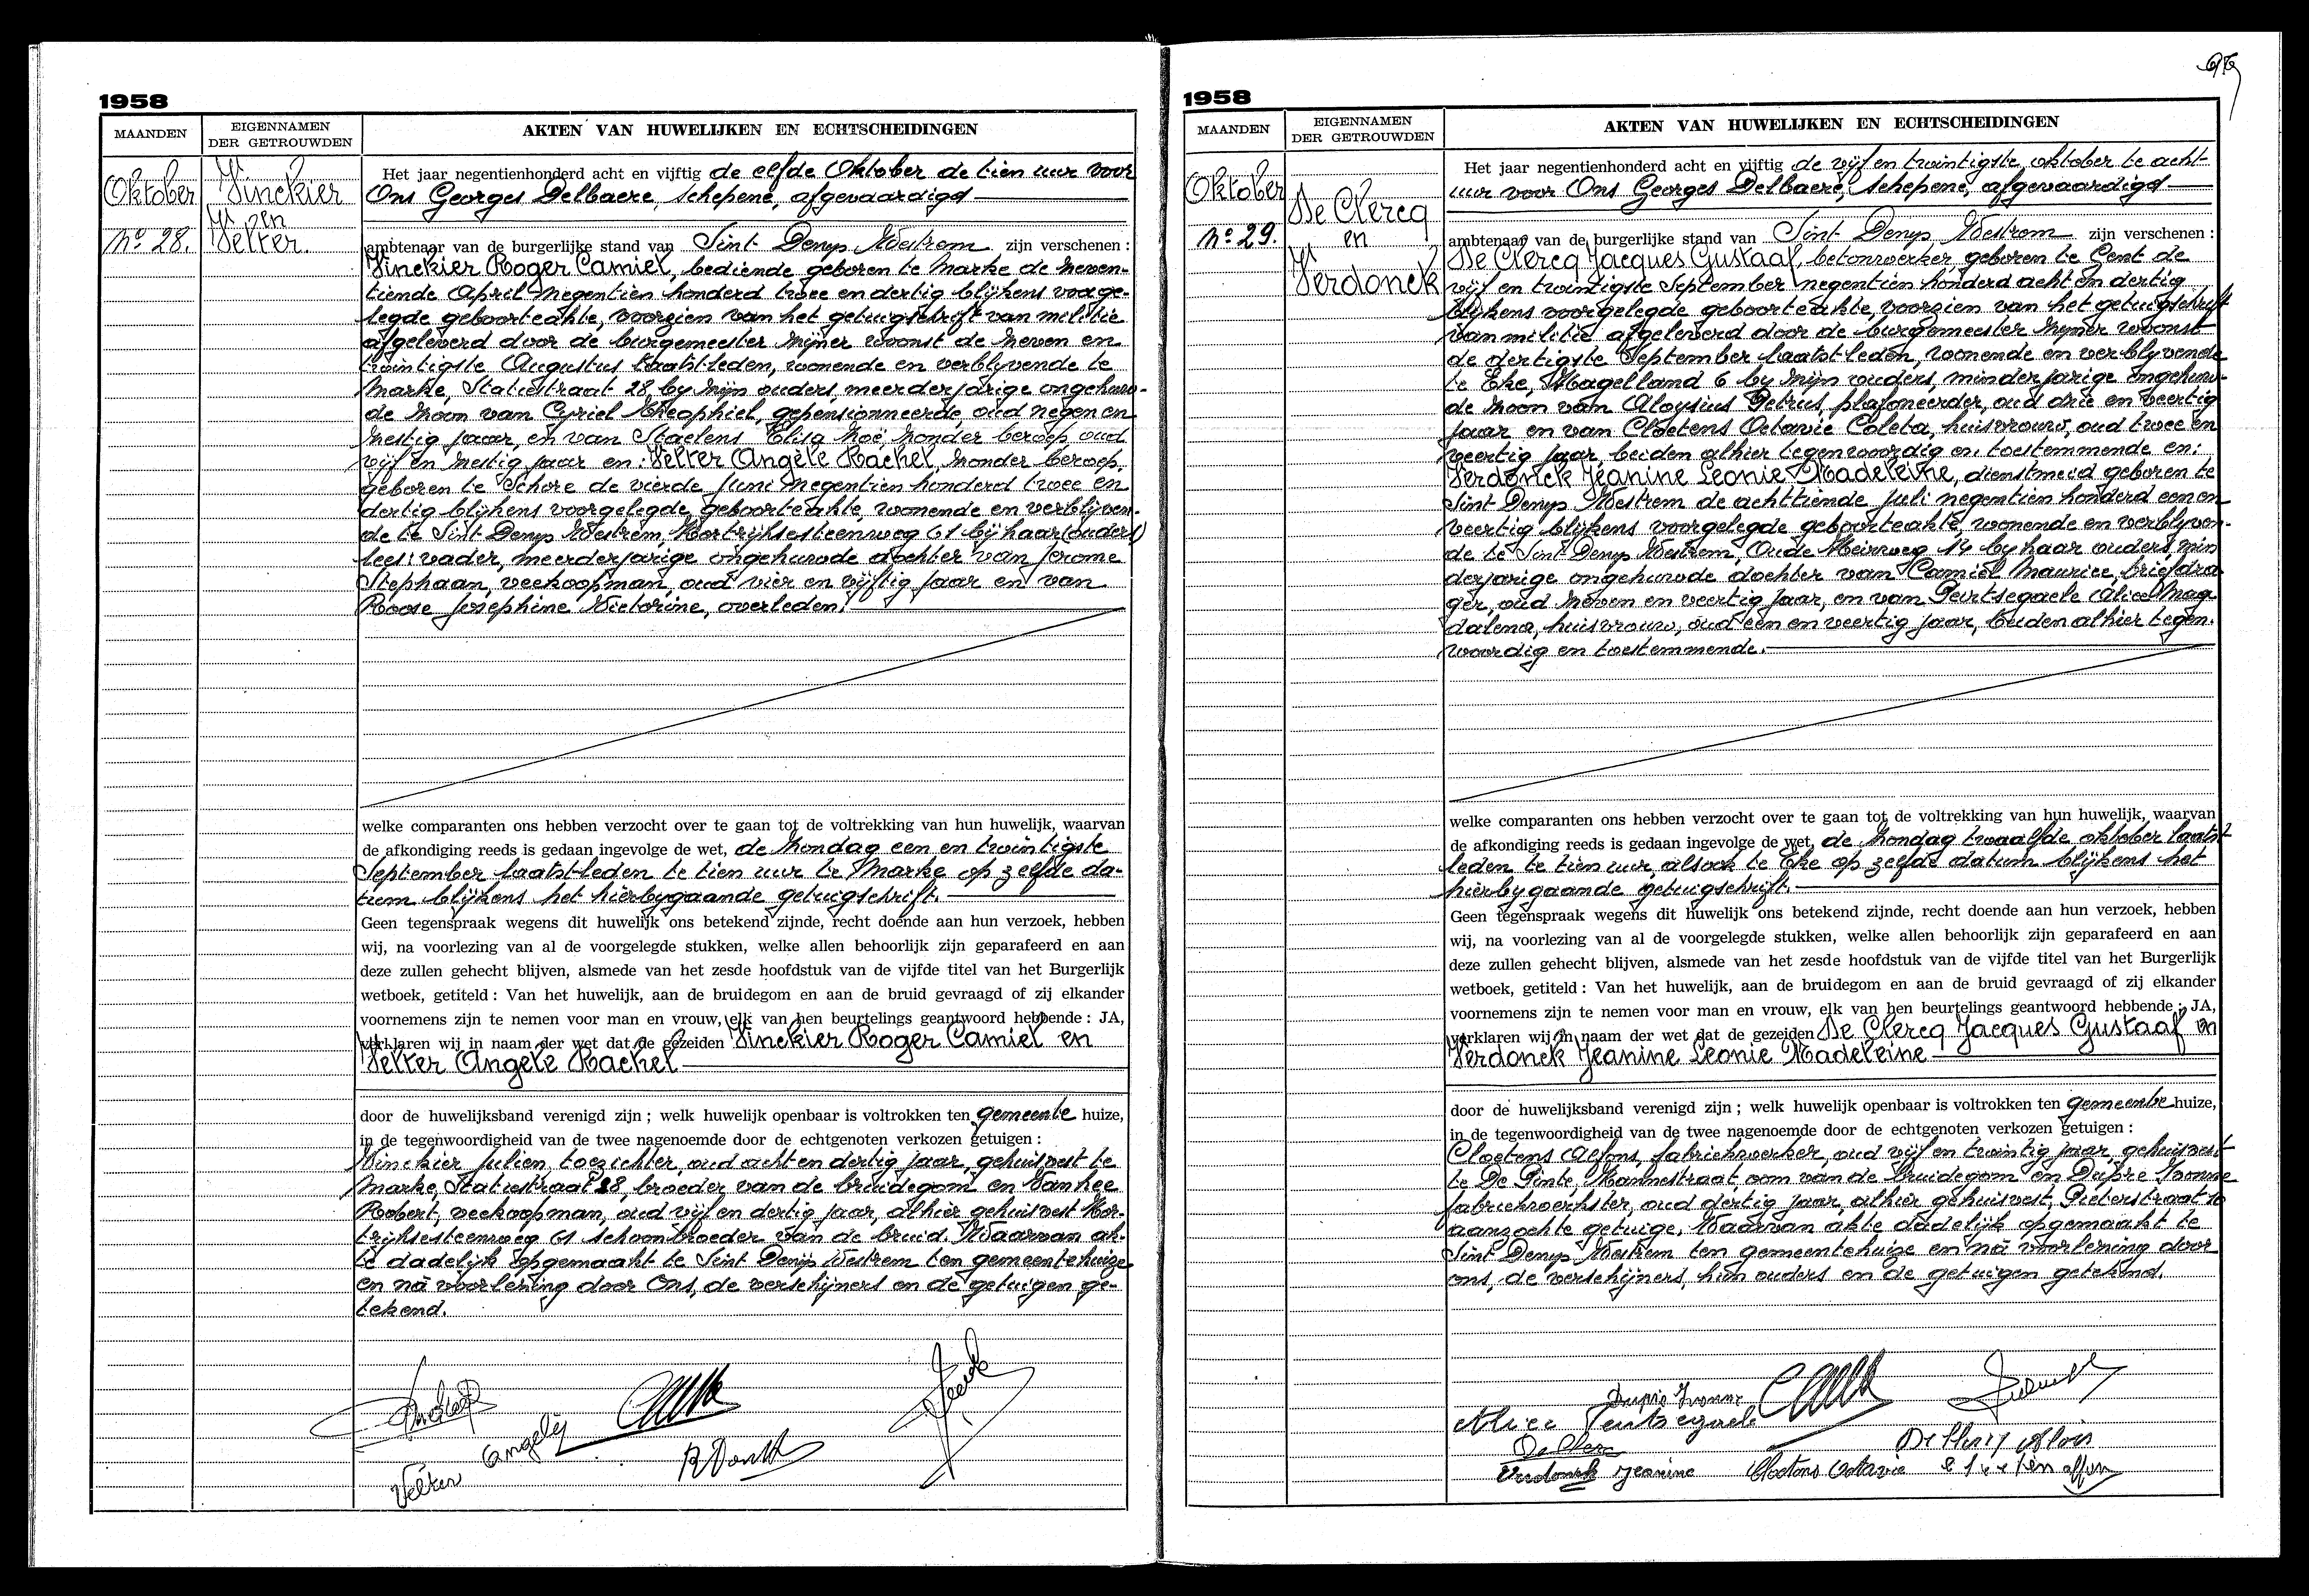 1958
MAANDEN
EIGENNAMEN
DER GETROUWDEN
AKTEN VAN HUWELIJKEN EN ECHTSCHEIDINGEN
Oktober
No 28.
Vinckier
en
Velter.
Het jaar negentienhonderd acht en vijftig de elfde Oktober de tien uur voor
Ons Georges Delbaere, schepene, afgevaardigd
ambtenaar van de burgerlijke stand van Sint Denys Westrem zijn verschenen :
Vinckier Roger Camiel, bediende geboren te Marke de zeven-
tiende April negentien honderd twee en dertig blijkens voorge-
legde geboorteakte, voorzien van het getuigschrift van militie
afgeleverd door de burgemeester zijner woonst de zeven en
twintigste Augustus laatstleden, wonende en verblyvende te
Marke, Statiestraat 28, by zijn ouders, meerderjarige ongehuw-
de zoon van Cyriel Theophiel, gepensionneerde, oud negen en
zestig jaar, en van Staelens Elisa Zoë, zonder beroep, oud
vijf en zestig jaar en: Velter Angèle Rachel, zonder beroep,
geboren te Schore de vierde Juni negentien honderd twee en
dertig blijkens voorgelegde geboorteakte, wonende en verblijven-
de te Sint Denys Westrem, Kortrijksesteenweg 61 bij haar (ouders)
lees: vader, meerderjarige ongehuwde dochter van Jerome
Stephaan, veekoopman, oud vier en vijftig jaar en van
Roose Josephine Victorine, overleden.
welke comparanten ons hebben verzocht over te gaan tot de voltrekking van hun huwelijk, waarvan
de afkondiging reeds is gedaan ingevolge de wet, de zondag een en twintigste
September laatstleden te tien uur te Marke op zelfde da-
tum blijkens het hierbygaande getuigschrift.
Geen tegenspraak wegens dit huwelijk ons betekend zijnde, recht doende aan hun verzoek, hebben
wij, na voorlezing van al de voorgelegde stukken, welke allen behoorlijk zijn geparafeerd en aan
deze zullen gehecht blijven, alsmede van het zesde hoofdstuk van de vijfde titel van het Burgerlijk
wetboek, getiteld : Van het huwelijk, aan de bruidegom en aan de bruid gevraagd of zij elkander
voornemens zijn te nemen voor man en vrouw, elk van hen beurtelings geantwoord hebbende : JA,
verklaren wij in naam der wet dat de gezeiden Vinckier Roger Camiel en
Velter Angèle Rachel
door de huwelijksband verenigd zijn ; welk huwelijk openbaar is voltrokken ten gemeente huize,
in de tegenwoordigheid van de twee nagenoemde door de echtgenoten verkozen getuigen :
Vinckier Julien, toezichter, oud acht en dertig jaar, gehuisvest te
Marke, Statiestraat 28, broeder van de bruidegom en Vanhee
Robert, veekoopman, oud vijf en dertig jaar, alhier gehuisvest Kor-
trijksesteenweg 61 schoonbroeder van de bruid. Waarvan ak-
te dadelijk opgemaakt te Sint Denijs Westrem ten gemeentehuize
en nà voorlezing door Ons, de verschijners en de getuigen ge-
tekend.
Velter Angèle
1958
MAANDEN
EIGENNAMEN
DER GETROUWDEN
AKTEN VAN HUWELIJKEN EN ECHTSCHEIDINGEN
Oktober
No 29.
De Clercq
en
Verdonck
Het jaar negentienhonderd acht en vijftig de vijf en twintigste oktober te acht
uur voor Ons Georges Delbaere, schepene, afgevaardigd
ambtenaar van de burgerlijke stand van Sint Denys Westrem zijn verschenen :
De Clercq Jacques Gustaaf, betonwerker, geboren te Gent de
vijf en twintigste September negentien honderd acht en dertig
blijkens voorgelegde geboorteakte, voorzien van het getuigschrift
van militie afgeleverd door de burgemeester zijner woonst
de dertigste September laatstleden, wonende en verblyvende
te Eke, Hagelland 6 by zijn ouders, minderjarige ongehuw-
de zoon van Aloysius Petrus, plafoneerder, oud drie en veertig
jaar en van Cloetens Octavie Coleta, huisvrouw, oud twee en
veertig jaar, beiden alhier tegenwoordig en toestemmende en:
Verdonck Jeanine Leonie Madeleine, dienstmeid geboren te
Sint Denys Westrem de achttiende juli negentien honderd een en
veertig blijkens voorgelegde geboorteakte, wonende en verblyven-
de te Sint Denys Westrem, Oude Heirweg 14 by haar ouders, min
derjarige ongehuwde dochter van Camiel Maurice, briefdra-
ger, oud zeven en veertig jaar, en van Peirtsegaele Alice Mag-
dalena, huisvrouw, oud een en veertig jaar, beiden alhier tegen-
woordig en toestemmende.
welke comparanten ons hebben verzocht over te gaan tot de voltrekking van hun huwelijk, waarvan
de afkondiging reeds is gedaan ingevolge de wet, de zondag twaalfde oktober laatst-
leden te tien uur, alsook te Eke op zelfde datum blijkens het
hierbygaande getuigschrift.
Geen tegenspraak wegens dit huwelijk ons betekend zijnde, recht doende aan hun verzoek, hebben
wij, na voorlezing van al de voorgelegde stukken, welke allen behoorlijk zijn geparafeerd en aan
deze zullen gehecht blijven, alsmede van het zesde hoofdstuk van de vijfde titel van het Burgerlijk
wetboek, getiteld : Van het huwelijk, aan de bruidegom en aan de bruid gevraagd of zij elkander
voornemens zijn te nemen voor man en vrouw, elk van hen beurtelings geantwoord hebbende : JA,
verklaren wij in naam der wet dat de gezeiden De Clercq Jacques Gustaaf en
Verdonck Jeanine Leonie Madeleine
door de huwelijksband verenigd zijn ; welk huwelijk openbaar is voltrokken ten gemeente huize,
in de tegenwoordigheid van de twee nagenoemde door de echtgenoten verkozen getuigen :
Cloetens Alfons, fabriekwerker, oud vijf en twintig jaar, gehuisvest
te De Pinte, Hannestraat, oom van de bruidegom en Dupré Yvonne
fabriekwerkster, oud dertig jaar, alhier gehuisvest, Pieterstraat
aanzochte getuige. Waarvan akte dadelijk opgemaakt te
Sint Denys Westrem ten gemeentehuize en nà voorlezing door
ons, de verschijners, hun ouders en de getuigen getekend.
Dupré Yvonne
Verdonck Jeanine Cloetens Octavie